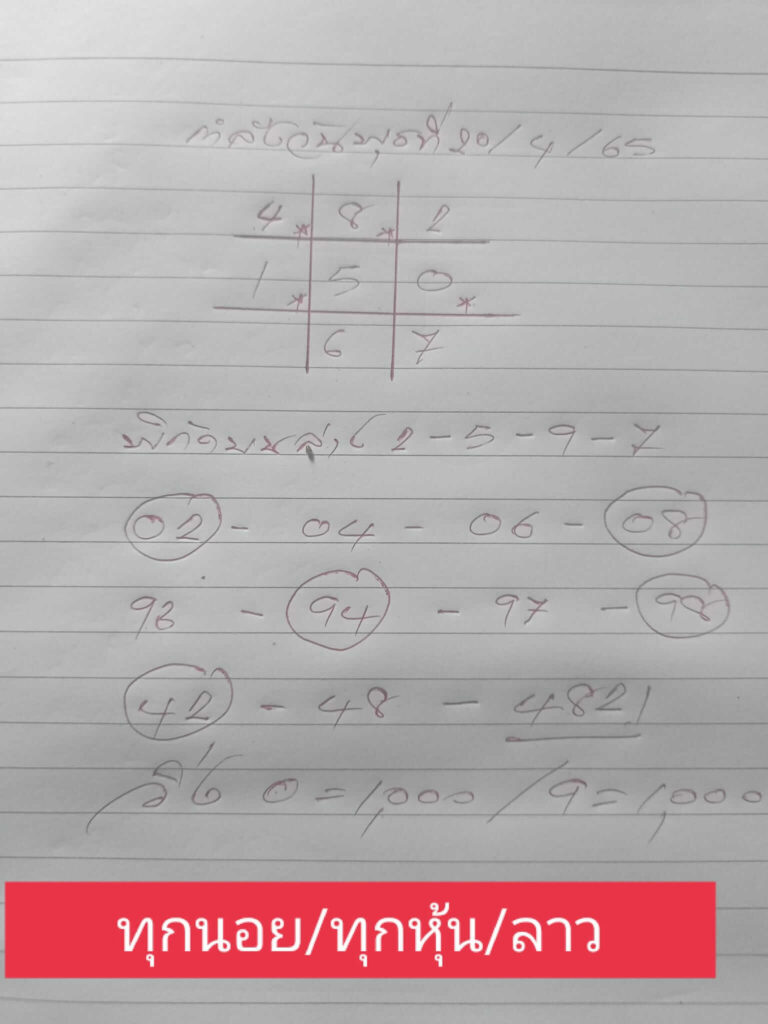 กำลังวันพุธที่ 20/4/65
4* 8* 2
1* 5 0*
6 7
พิกัดบนล่าง 2-5-9-7
02 - 04 - 06 - 08
93 - 94 - 97 - 98
42 - 48 - 4821
วิ่ง 0=1,000 / 9=1,000
ทุกนอย/ทุกหุ้น/ลาว